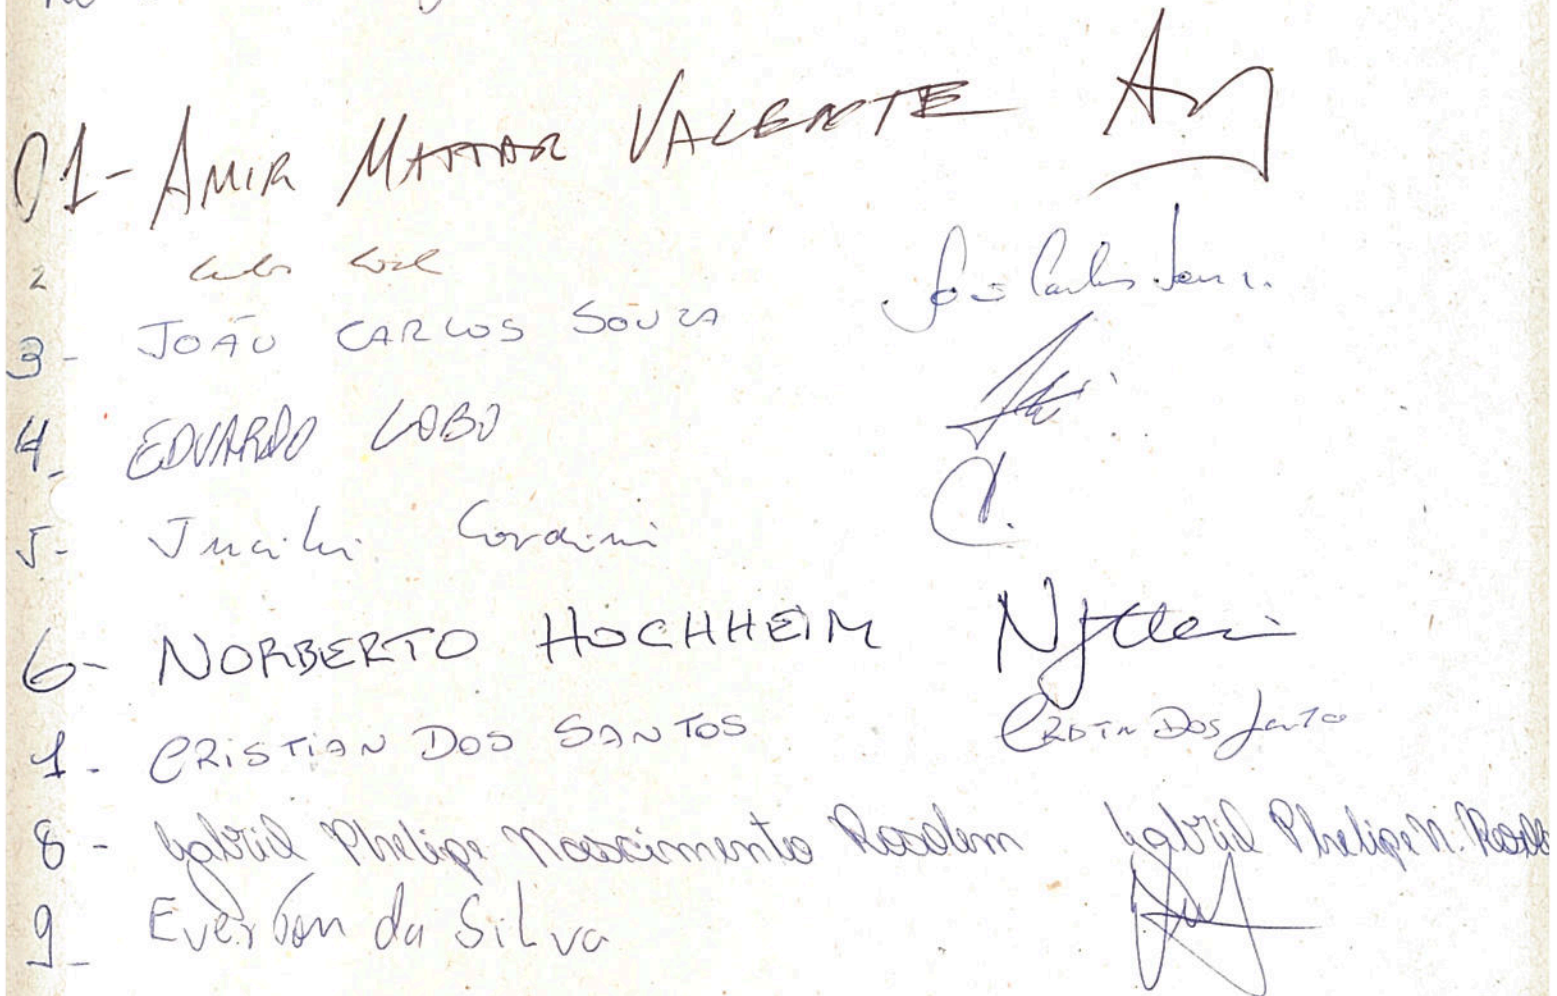 01- AMIR MATTAR VALENTE
2
3- JOÃO CARLOS SOUZA João Carlos Souza
4- EDUARDO LOBO
5- Jucilei Cordini
6- NORBERTO HOCHHEIM
7- CRISTIAN DOS SANTOS CRISTIN DOS SANTO
8- Gabriel Phelipe Nascimento Rosolem Gabriel Phelipe N. Roso
9- Everton da Silva